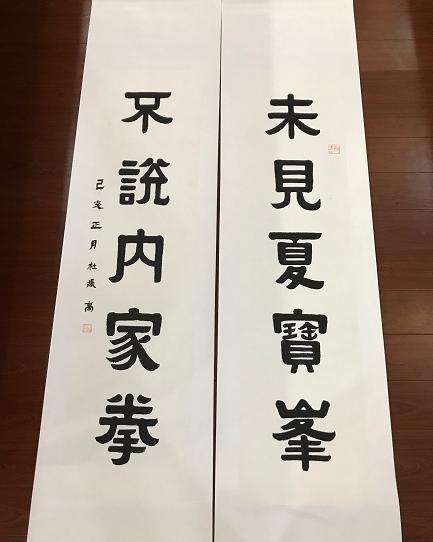 未見夏寶峯
不說內家拳
己亥正月杜振高